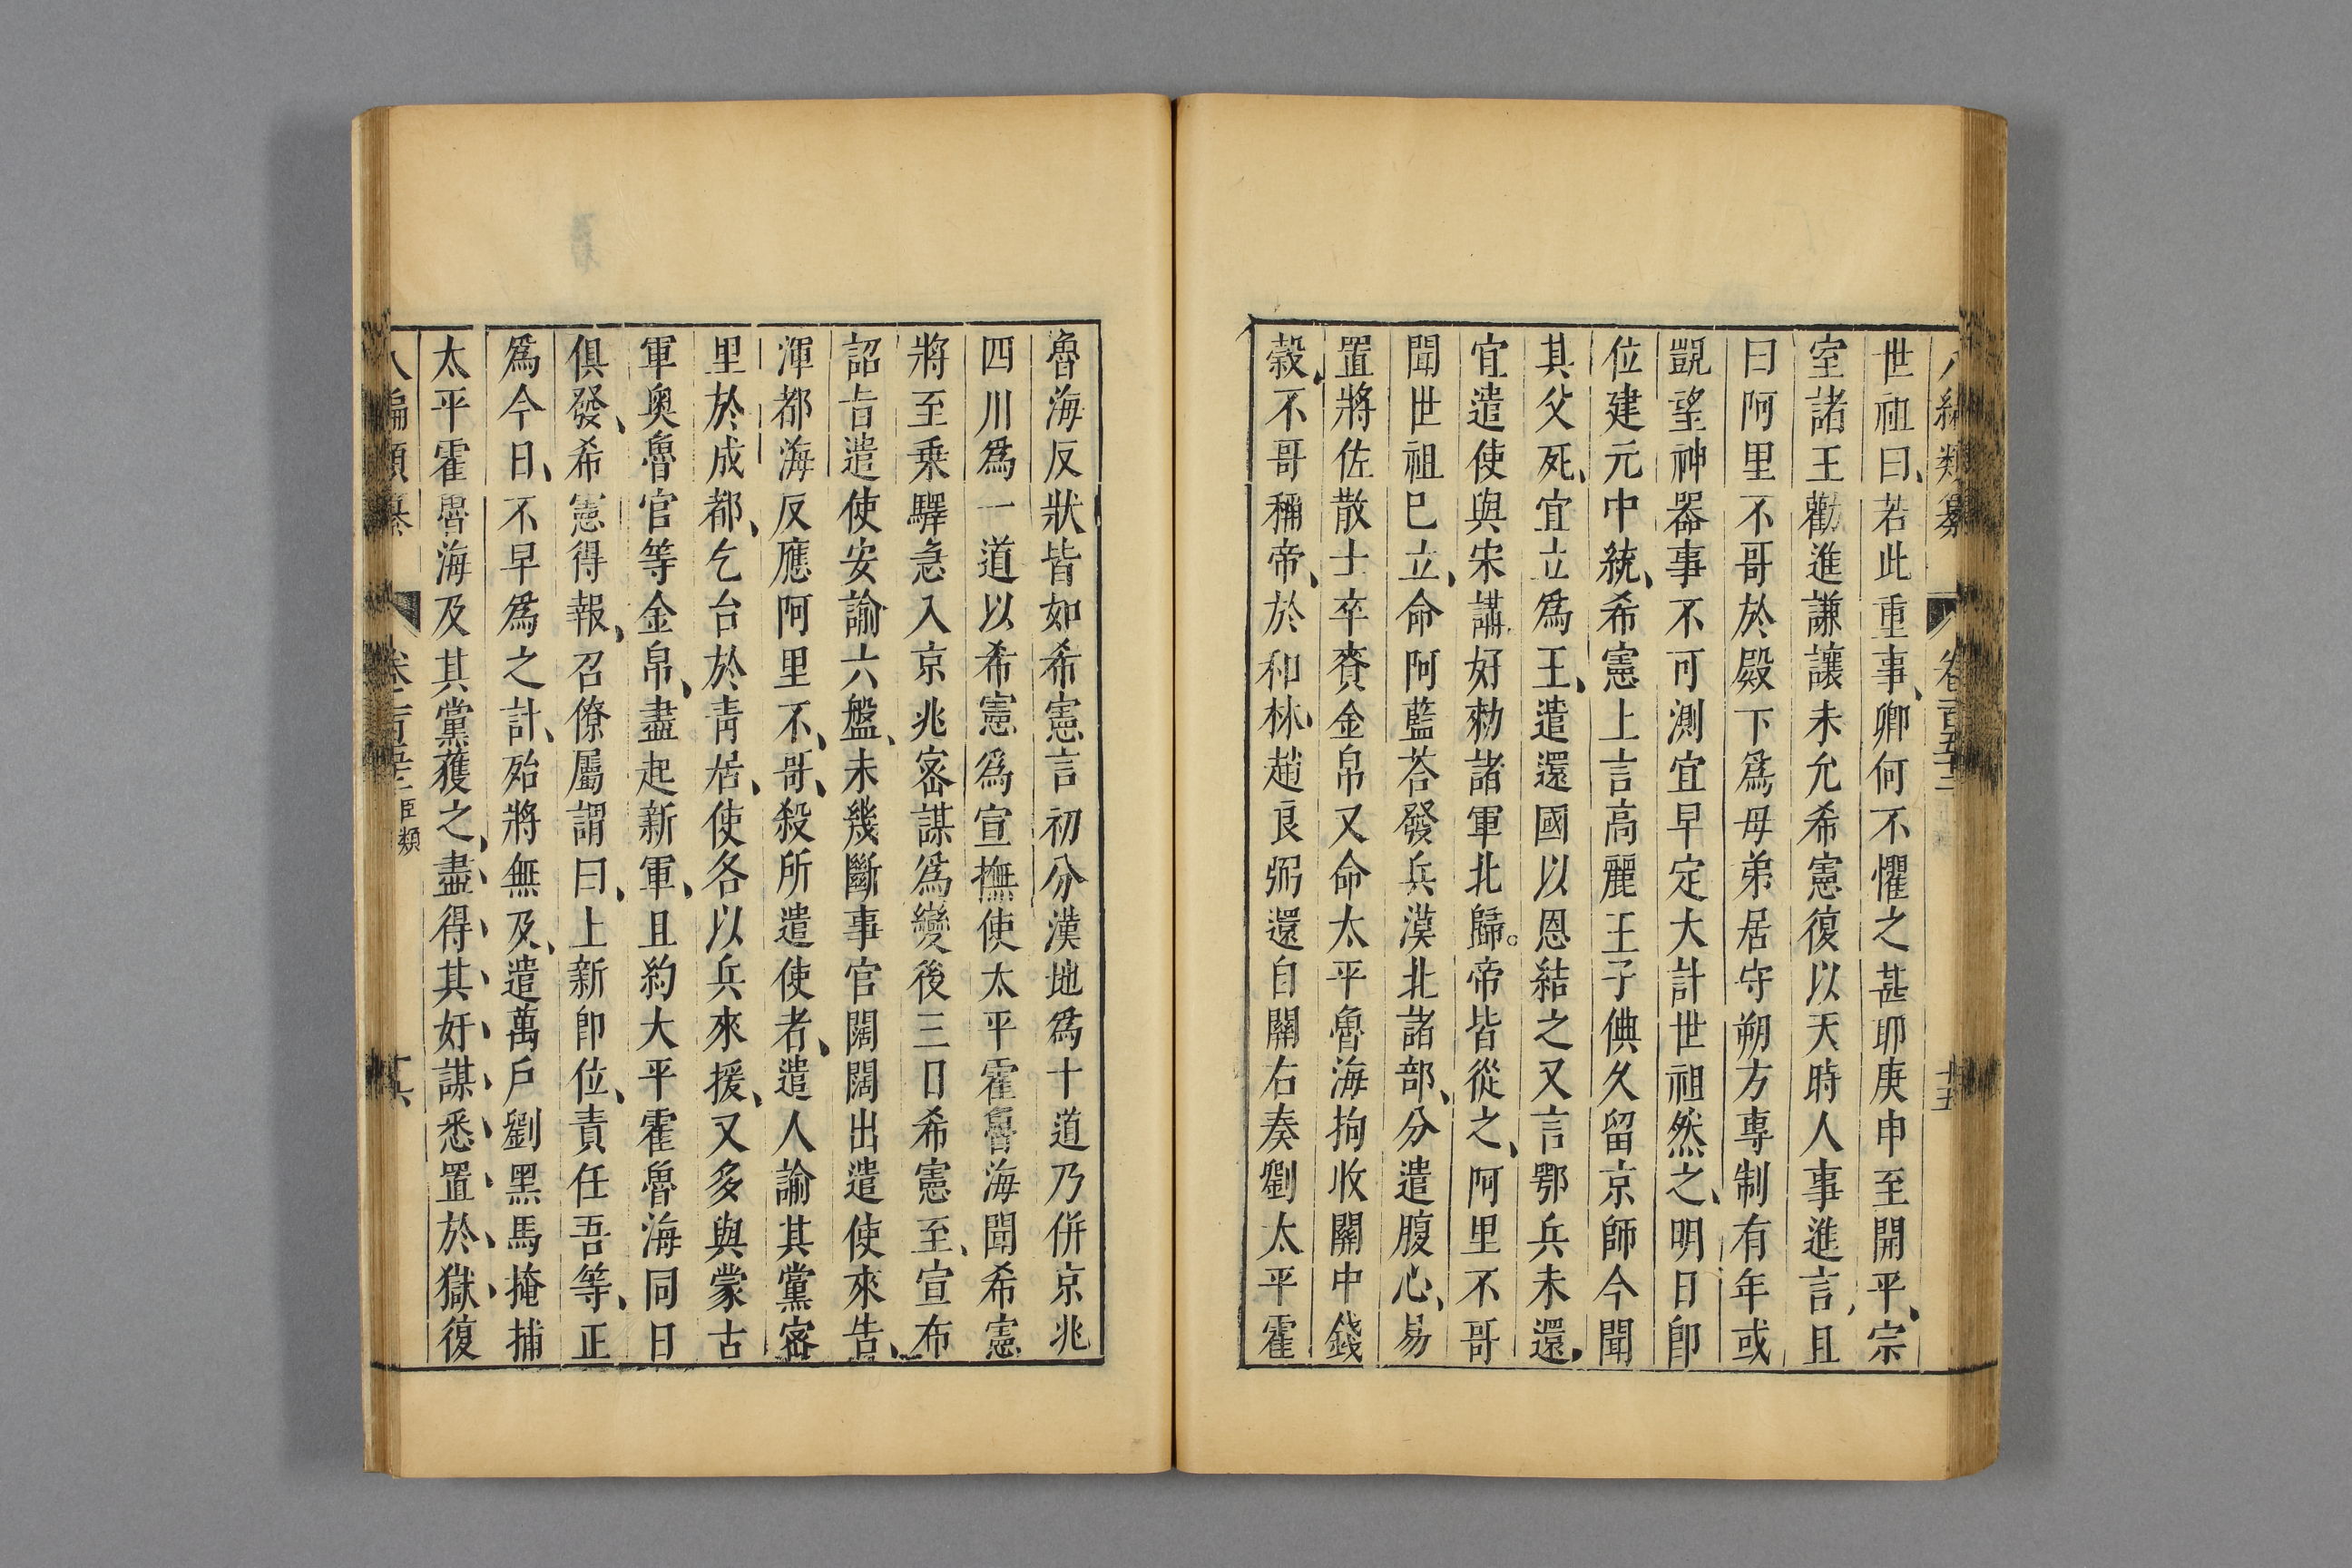 八編類纂 卷一百五十二 十五
世祖曰、若此重事、卿何不懼之甚耶庚申至開平、宗
室諸王勸進謙讓未允希憲復以天時人事進言、且
曰阿里不哥於殿下爲母弟居守朔方專制有年或
覬望神器事不可測宜早定大計世祖然之、明日卽
位建元中統、希憲上言高麗王子倎久留京師今聞
其父死、宜立爲王、遣還國以恩結之又言鄂兵未還、
宜遣使與宋講好勑諸軍北歸。帝皆從之、阿里不哥
聞世祖已立、命阿藍荅發兵漠北諸部、分遣腹心、易
置將佐散士卒賚金帛又命太平魯海拘收關中錢
穀、不哥稱帝、於和林、趙良弼還自關右奏劉太平霍
魯海反狀皆如希憲言初分漢地爲十道乃併京兆
四川爲一道以希憲爲宣撫使太平霍魯海聞希憲
將至乗驛急入京兆宻謀爲變後三日希憲至、宣布
詔旨遣使安諭六盤、未幾斷事官闊闊出遣使來告、
渾都海反應阿里不、哥、殺所遣使者、遣人諭其黨宻
里於成都、乞台於青居、使各以兵來援、又多與蒙古
軍奥魯官等金帛、盡起新軍、且約大平霍魯海同日
俱發、希憲得報、召僚屬謂曰、上新卽位、責任吾等、正
爲今日、不早爲之計、殆將無及、遣萬戸劉黑馬掩捕
太平霍魯海及其黨獲之、盡得其奸謀悉置於獄復
八編類纂 卷一百五十二 臣類 十六